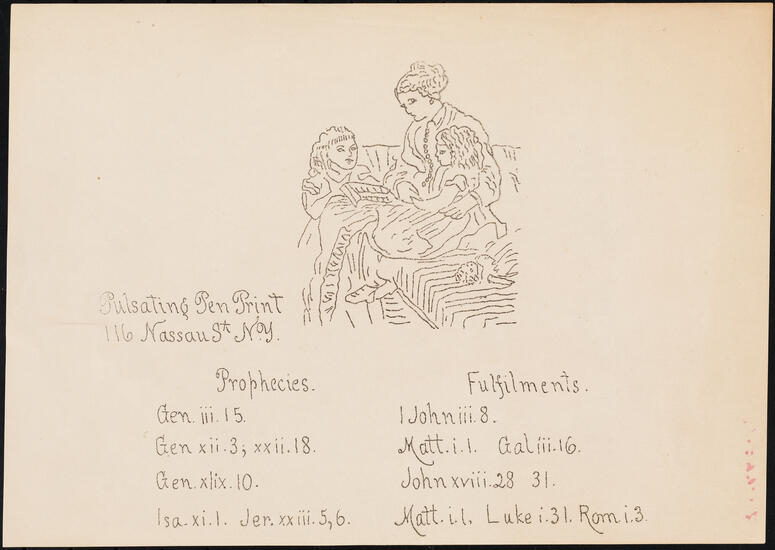 Pulsating Pen Print
116 Nassau St N.Y.
Prophecies.
Fulfilments.
Gen. iii. 15.
1 John iii. 8.
Gen xii. 3; xxii. 18.
Matt. i. 1. Gal iii. 16.
Gen. xlix. 10.
John xviii. 28 31.
Isa. xi. 1. Jer. xxiii. 5, 6.
Matt. i. 1, Luke i. 31. Rom i. 3.